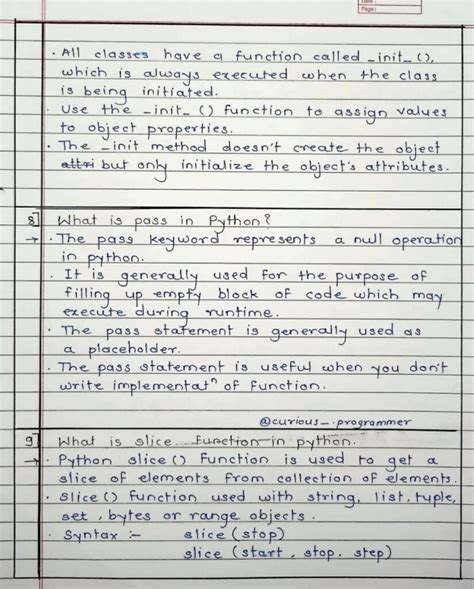 Date:
Page:
· All classes have a function called _init_ (),
which is always executed when the class
is being initiated.
· Use the _init_ () function to assign values
to object properties.
· The _init method doesn't create the object
but only initialize the object's attributes.
8] What is pass in Python?
→ · The pass keyword represents a null operation
in python.
· It is generally used for the purpose of
filling up empty block of code which may
execute during runtime.
· The pass statement is generally used as
a placeholder.
· The pass statement is useful when you don't
write implementatⁿ of function.
@curious_.programmer
9] What is slice function in python.
→ · Python slice() function is used to get a
slice of elements from collection of elements.
· slice () function used with string, list, tuple,
set, bytes or range objects.
· Syntax :- slice (stop)
slice (start, stop, step)